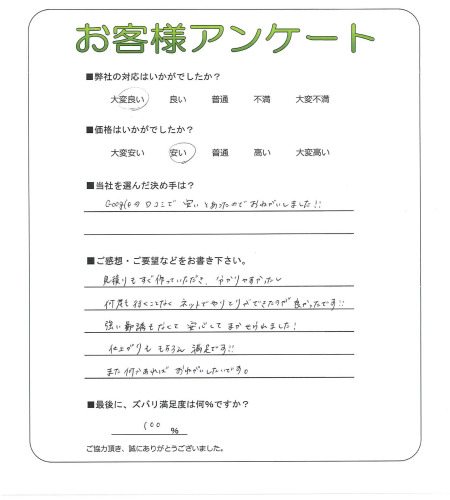 お客様アンケート
■弊社の対応はいかがでしたか?
大変良い 良い 普通 不満 大変不満
■価格はいかがでしたか?
大変安い 安い 普通 高い 大変高い
■当社を選んだ決め手は?
Googleの口コミで 安いとあったので おねがいしました!!
■ご感想・ご要望などをお書き下さい。
見積りもすぐ作っていただき、分かりやすかったし
何度も行くことなく ネットでやりとりができたのが 良かったです!!
強い勧誘もなくて 安心して まかせられました!
仕上がりも もちろん 満足です!!
また何かあれば おねがいしたいです。
■最後に、ズバリ満足度は何%ですか?
100 %
ご協力頂き、誠にありがとうございました。